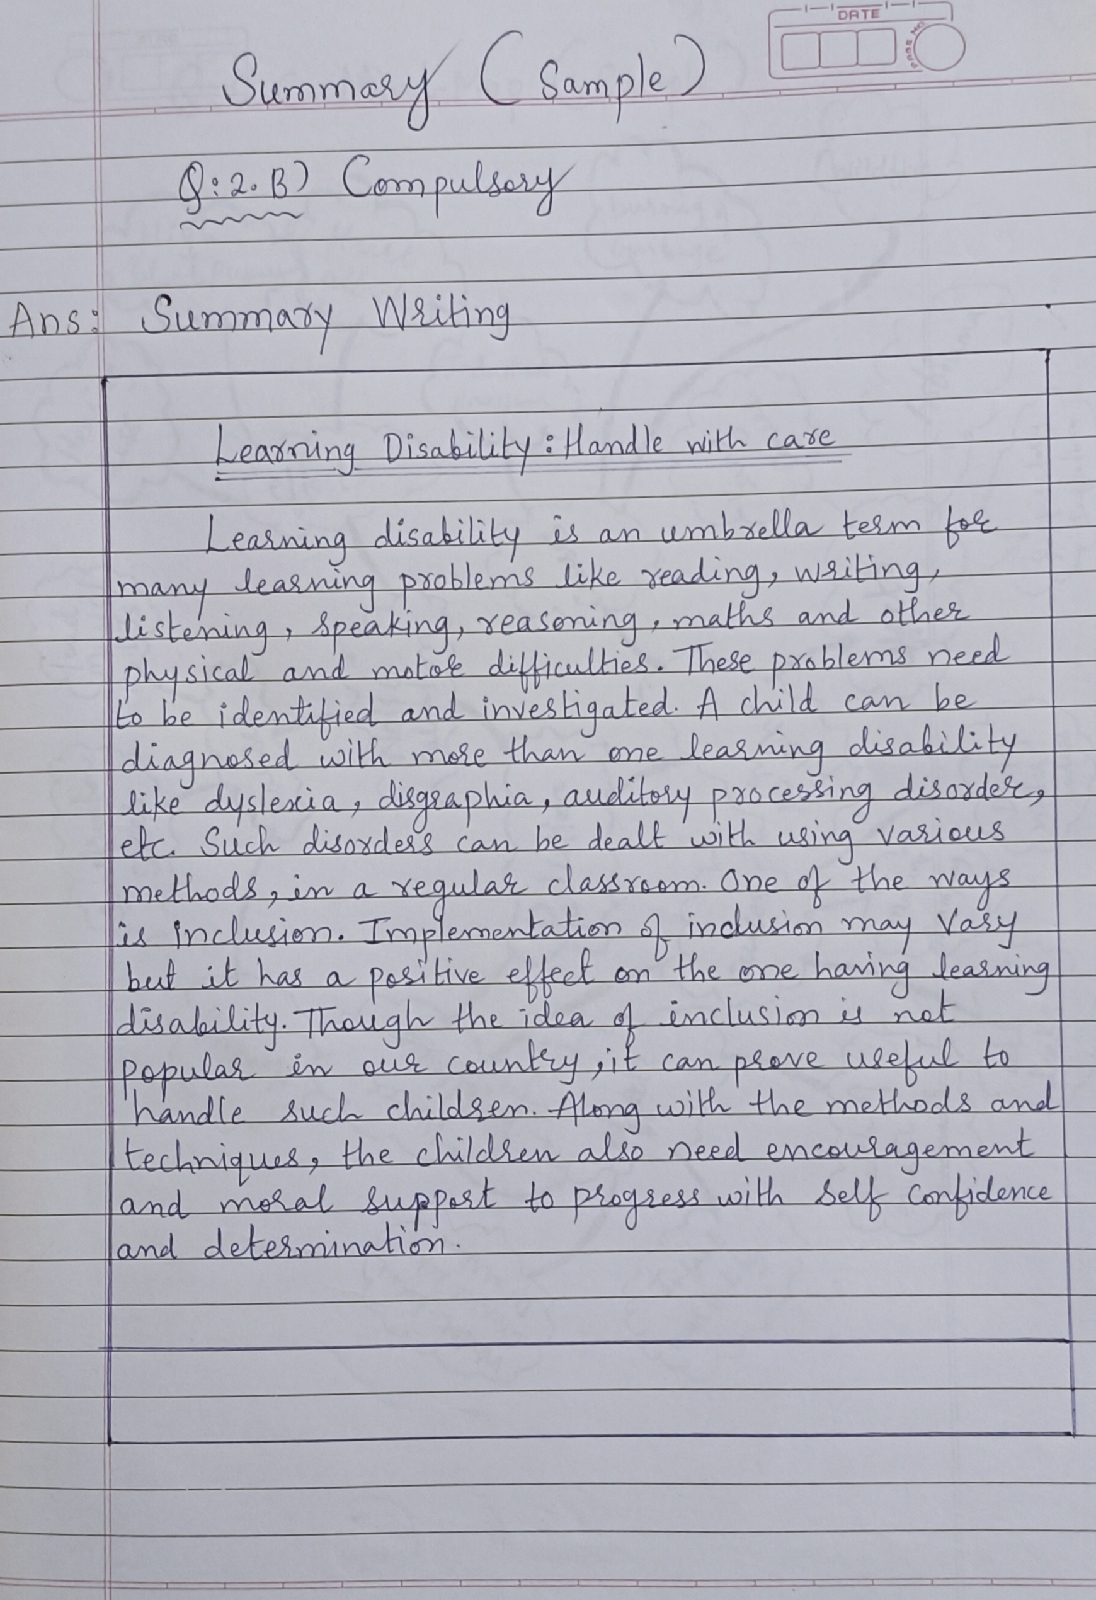 DATE
PAGE NO.
Summary (Sample)
Q:2.B) Compulsory
Ans: Summary Writing
Learning Disability: Handle with care
Learning disability is an umbrella term for
many learning problems like reading, writing,
listening, speaking, reasoning, maths and other
physical and motor difficulties. These problems need
to be identified and investigated. A child can be
diagnosed with more than one learning disability
like dyslexia, disgraphia, auditory processing disorder,
etc. Such disorders can be dealt with using various
methods, in a regular classroom. One of the ways
is inclusion. Implementation of inclusion may vary
but it has a positive effect on the one having learning
disability. Though the idea of inclusion is not
popular in our country, it can prove useful to
handle such children. Along with the methods and
techniques, the children also need encouragement
and moral support to progress with self confidence
and determination.